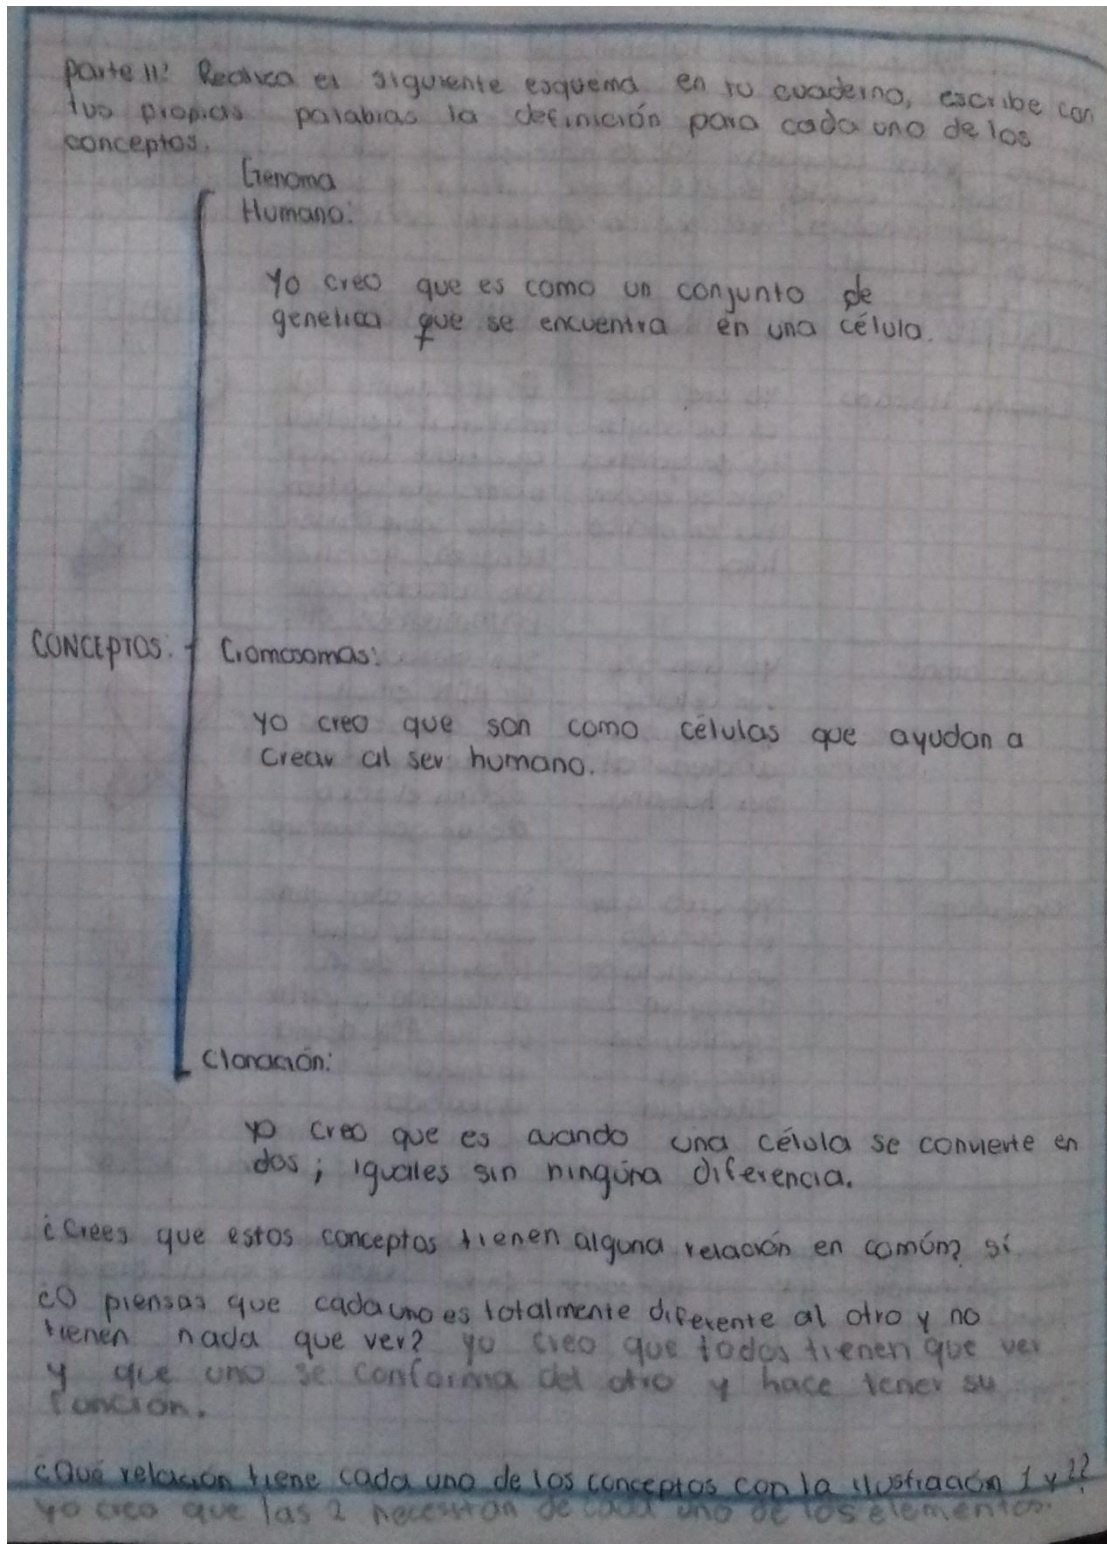 Parte II: Realiza el siguiente esquema en tu cuaderno, escribe con
tus propias palabras la definición para cada uno de los
conceptos.
Genoma
Humano:
Yo creo que es como un conjunto de
genetica que se encuentra en una célula.
CONCEPTOS:
Cromosomas:
yo creo que son como células que ayudan a
crear al ser humano.
Clonación:
yo creo que es cuando una célula se convierte en
dos; iguales sin ninguna diferencia.
¿Crees que estos conceptos tienen alguna relación en común? sí
¿O piensas que cada uno es totalmente diferente al otro y no
tienen nada que ver? yo creo que todos tienen que ver
y que uno se conforma del otro y hace tener su
función.
¿Qué relación tiene cada uno de los conceptos con la ilustración 1 y 2?
yo creo que las 2 necesitan de cada uno de los elementos.